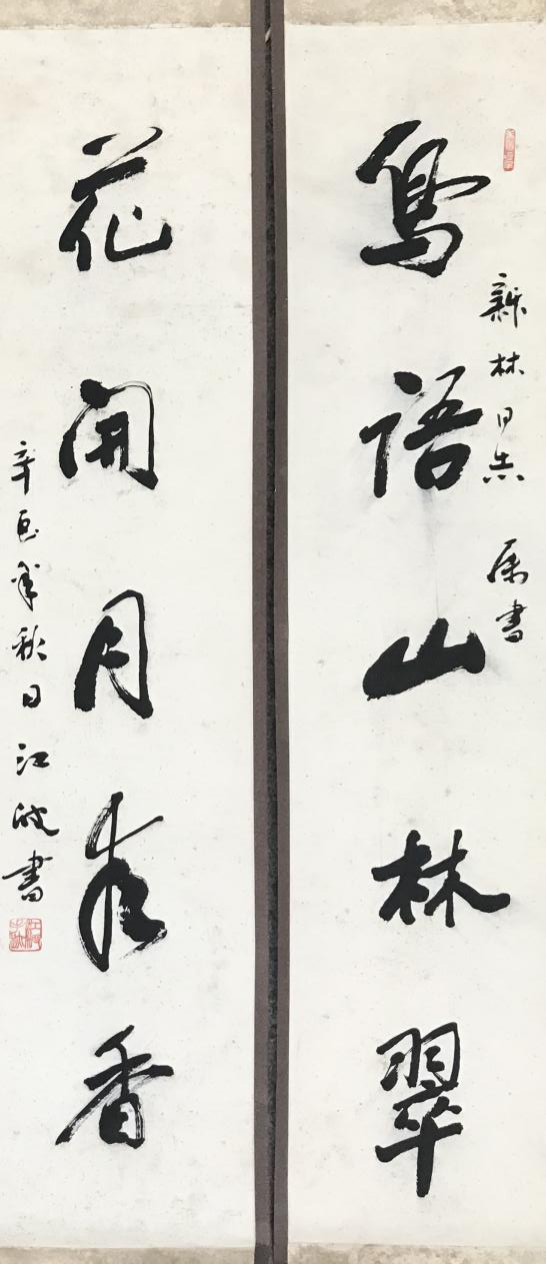 鳥語山林翠
新林同志属書
花開月夜香
辛酉年秋日江波書